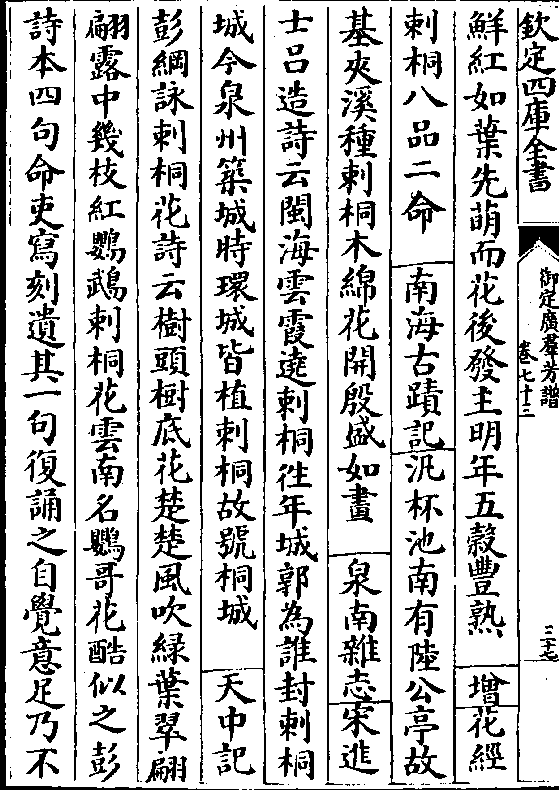 欽定四庫全書
御定廣羣芳譜
卷七十三
三十七
鮮紅如葉先萌而花後發主明年五穀豐熟增花經
刺桐八品二命南海古蹟記汎杯池南有陸公亭故
基夾溪種刺桐木綿花開殷盛如畫泉南雜志宋進
士吕造詩云閩海雲霞遶刺桐徃年城郭為誰封刺桐
城今泉州築城時環城皆植刺桐故號桐城天中記
彭綱詠刺桐花詩云樹頭樹底花楚楚風吹緑葉翠翩
翩露中幾枝紅鸚鵡刺桐花雲南名鸚哥花酷似之彭
詩本四句命吏寫刻遺其一句復誦之自覺意足乃不